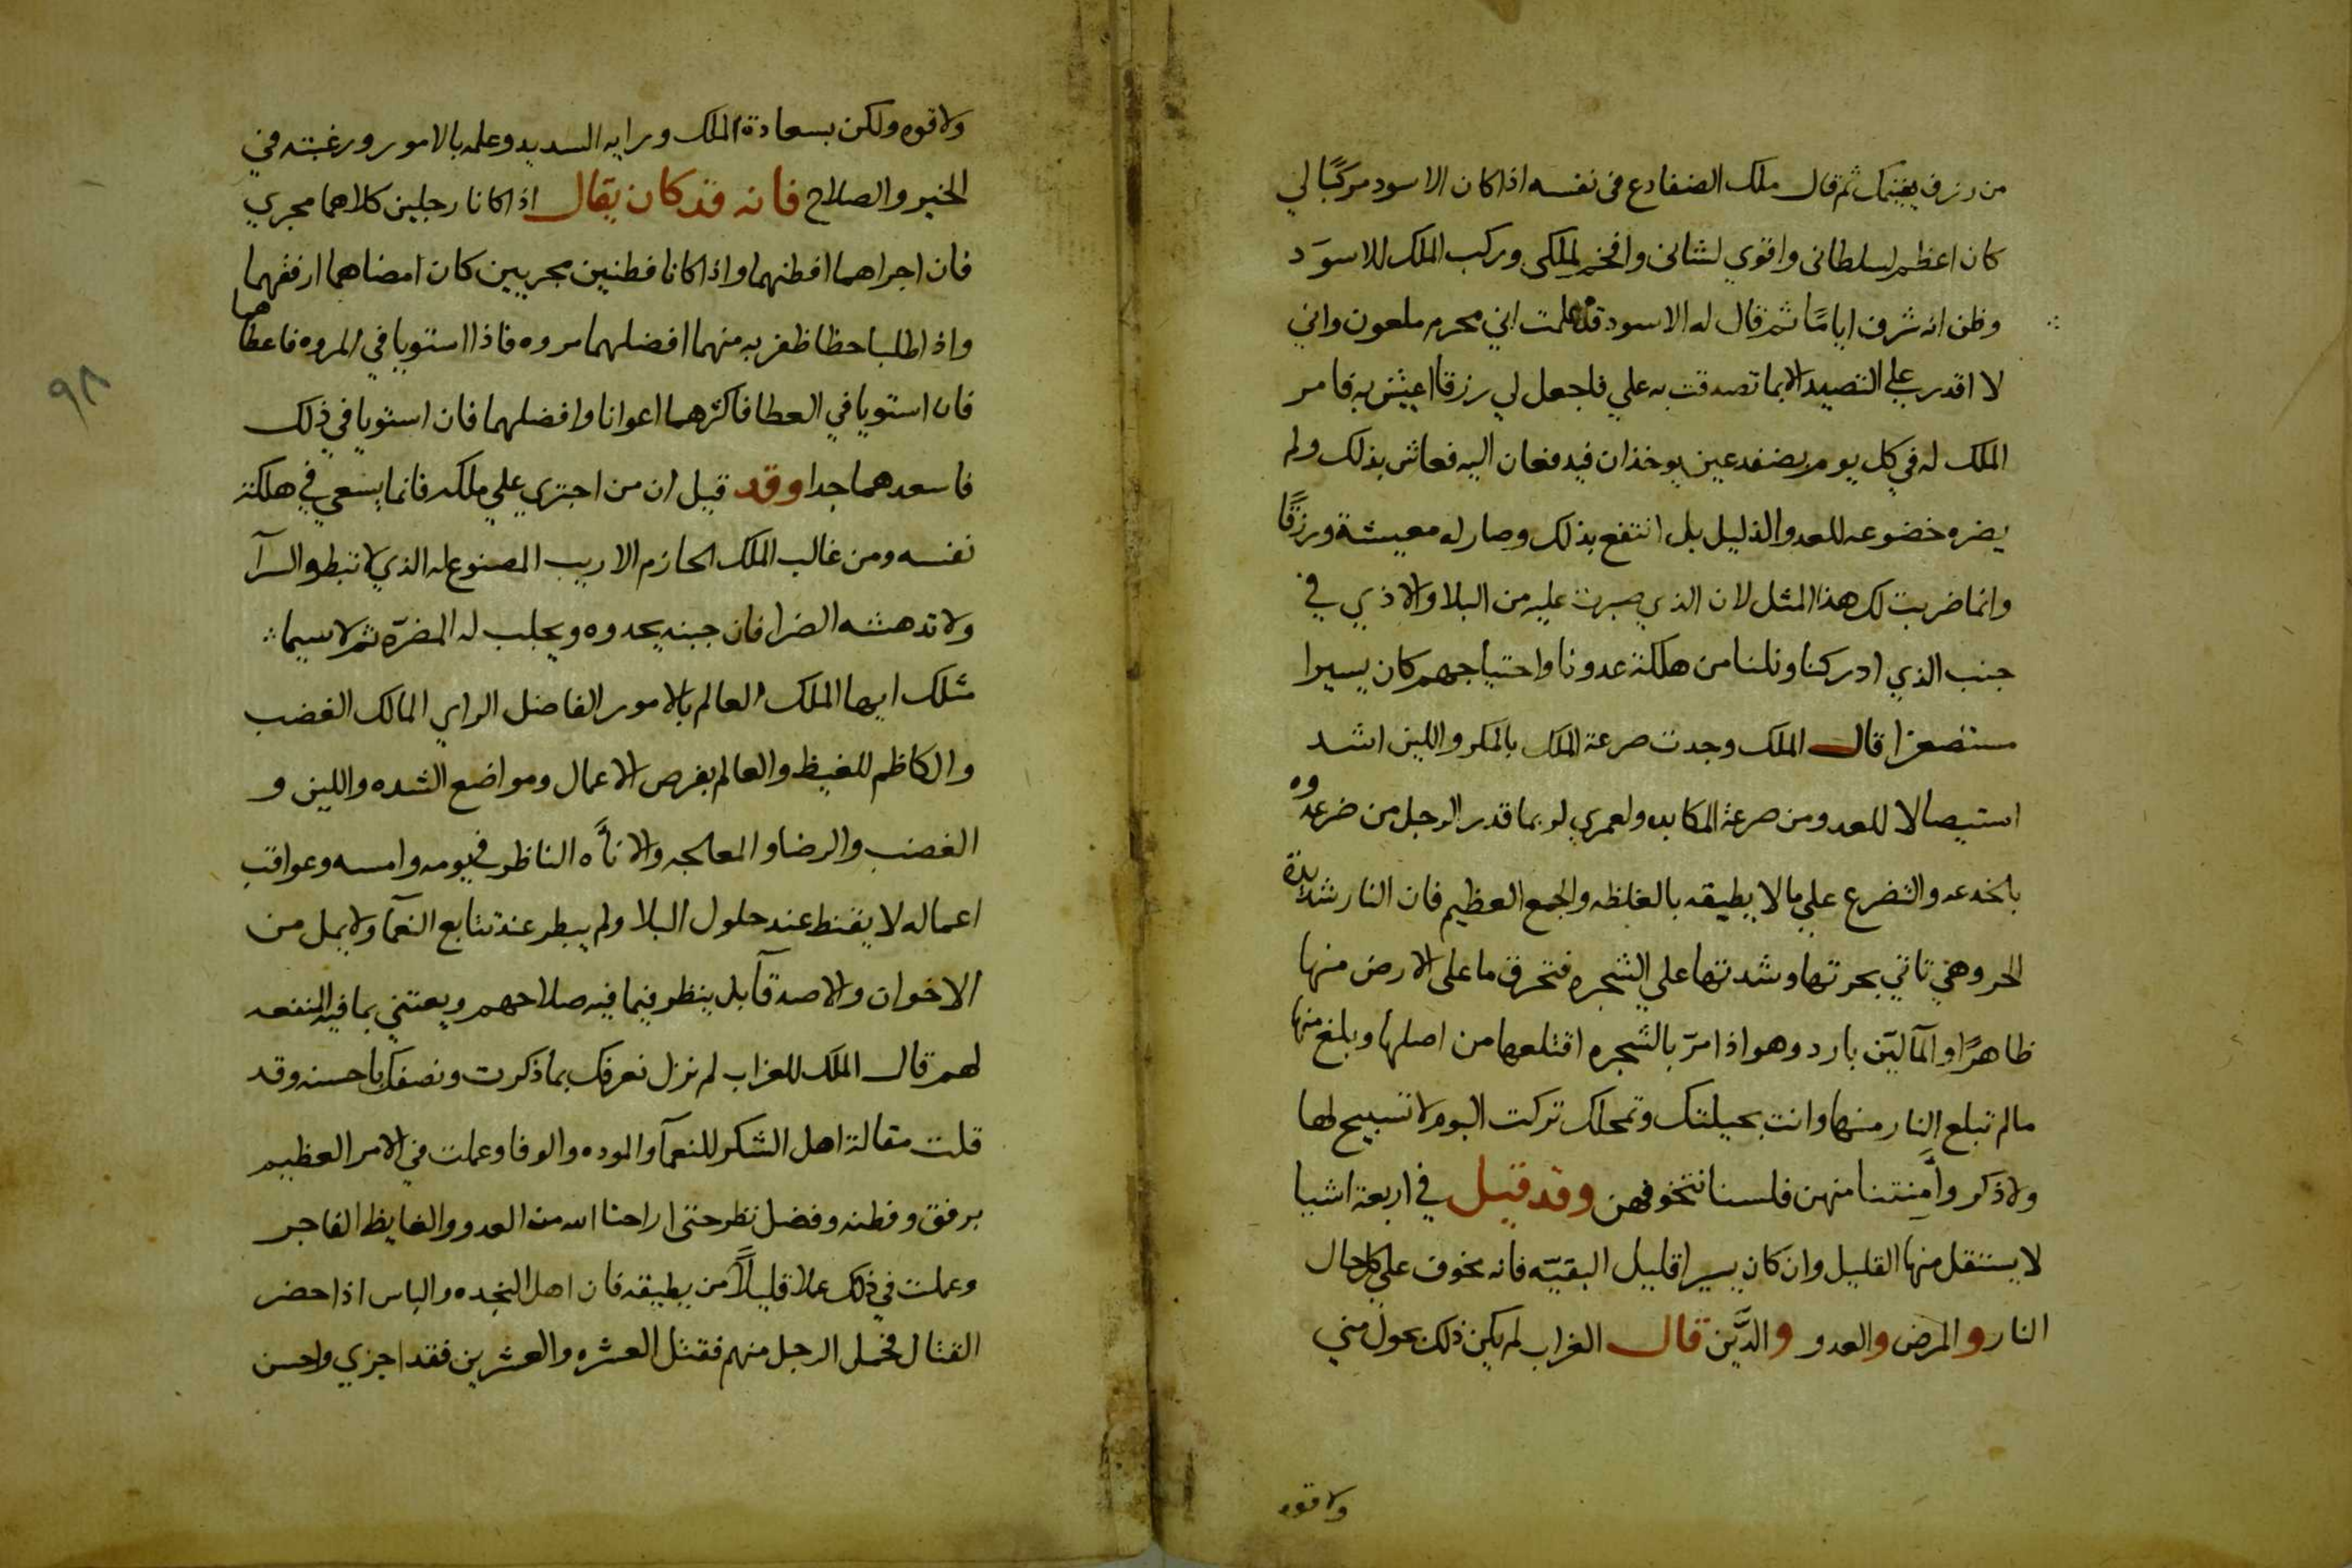 من رزق يغنيك ثم قال ملك الضفادع في نفسه اذا كان الاسود مركبًا لي
كان اعظم لسلطاني واقوي لشاني وافخم لملكي وركب الملك للاسوَد
وظن انه شرف ايامًا ثم قال له الاسود قد علمت اني محرم ملعون واني
لا اقدر علي التصيد الا بما تصدقت به علي فاجعل لي رزقا اعيش به فامر
الملك له في كل يوم بضفدعين يوخذان فيدفعان اليه فعاش بذلك ولم
يضره خضوعه للعدو الذليل بل انتفع بذلك وصار له معيشة ورزقًا
وانما ضربت لك هذا المثل لان الذي صبرت عليه من البلا والاذي في
جنب الذي ادركنا ونلنا من هلكة عدونا واحتياجهم كان يسيرا
مستصغرا قال الملك وجدت صرعة الملك بالمكر واللين اشد
استيصالا للعدو من صرعة المكابه ولعمري لربما قدر الرجل من ضرعدوه
بالخدعه والتضرع علي ما لا يطيقه بالغلظه والجمع العظيم فان النار شديدة
الحر وهي تاتي بحرتها وشدتها علي الشجره فتحرق ما على الارض منها
ظاهرًا والمآ لين بارد وهو اذا مرّ بالشجره اقتلعها من اصلها وبلغ منها
مالم تبلع النار منها وانت بحيلتك وتمحلك تركت البوم لا تسبيح لها
ولا ذكر وأمِنتنا منهن فلسنا نتخوفهن وقد قيل في اربعة اشيا
لا يستقل منها القليل وان كان يسيرا قليل البقيّه فانه مخوف علي كل حال
النار والمرض والعدو والدَّين قال الغراب لم يكن ذلك بحول مني
ولا قوه
ولا قوه ولكن بسعادة الملك ورايه السديد وعلمه بالامور ورغبته في
الخير والصلاح فانه قد كان يقال اذا كانا رجلين كلاهما مجري
فان اجراهما افطنهما واذا كانا فطنين مجريين كان امضاهما ارفقهما
واذا طلبا حظا ظفر به منهما افضلهما مروه فاذا استويا في المروه فاعطاهما
فان استويا في العطا فاكثرهما اعوانا وافضلهما فان استويا في ذلك
فاسعدهما جدا وقد قيل ان من اجتري علي ملكه فانما يسعي في هلكة
نفسه ومن غالب الملك الحازم الاريب المصنوع له الذي لا تبطره السرآ
ولا تدهشه الضرا فان جبنه يحدوه ويجلب له المضرّه ثم لا سيما
مثلك ايها الملك العالم بالامور الفاضل الراي المالك الغضب
والكاظم للغيظ والعالم بفرص الاعمال ومواضع الشده واللين و
الغضب والرضا والمعالجه والاناه الناظر في يومه وامسه وعواقب
اعماله لا يقنط عند حلول البلا ولم يبطر عند تتابع النعمآ ولا يمل من
الاخوان والاصدقآ بل ينظر فيما فيه صلاحهم ويعتني بما فيه المنفعه
لهم قال الملك للغراب لم نزل نعرفك بما ذكرت ونصفك باحسنه وقد
قلت مقالة اهل الشكر للنعمآ والموده والوفا وعملت في الامر العظيم
برفق وفطنه وفضل نظر حتى اراحنا الله من العدو والغايظ الفاجر
وعملت في ذلك عملا قليلًا من يطيقه فان اهل النجده والباس اذا حضر
القتال فحمل الرجل منهم فقتل العشره والعشرين فقد اجزي واحسن
٩٨